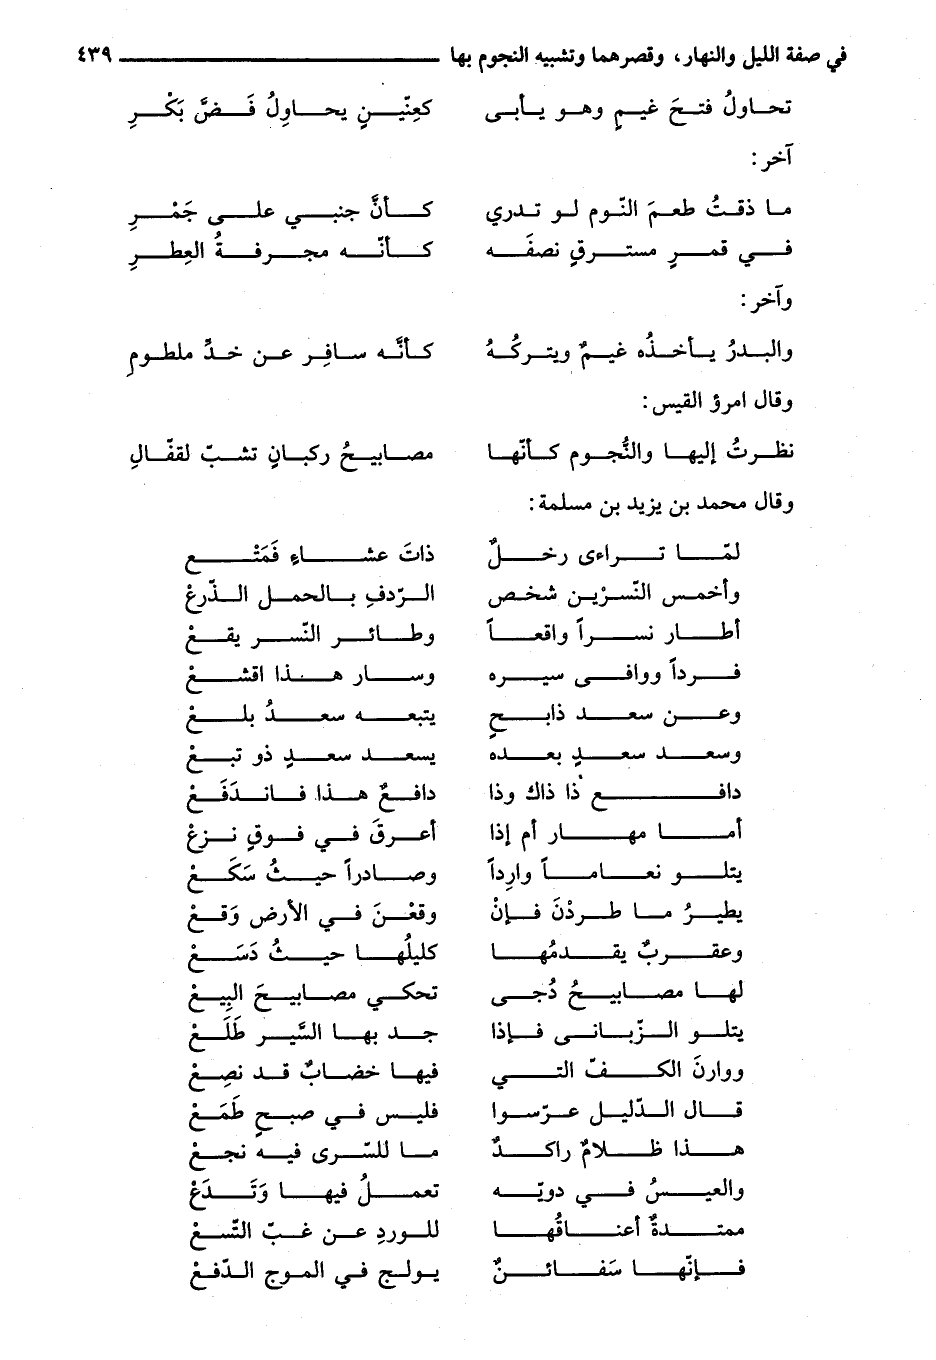 في صفة الليل والنهار، وقصرهما وتشبيه النجوم بها ٤٣٩
تحاولُ فتحَ غيمٍ وهو يأبى كعِنّينٍ يحاوِلُ فَضَّ بَكْرِ
آخر:
ما ذقتُ طعمَ النّوم لو تدري كأنَّ جنبي على جَمْرِ
في قمرٍ مسترقٍ نصفَه كأنّه مجرفةُ العِطرِ
وآخر:
والبدرُ يأخذُه غيمٌ ويتركُهُ كأنَّه سافِر عن خدِّ ملطومِ
وقال امرؤ القيس:
نظرتُ إليها والنُّجوم كأنّها مصابيحُ ركبانٍ تشبّ لقفّالِ
وقال محمد بن يزيد بن مسلمة:
لمّا تراءى رخلٌ ذاتَ عشاءٍ فَمَتْع
وأخمس النّسرْين شخص الرّدفِ بالحمل الذّرعْ
أطار نسراً واقعاً وطائر النّسر يقعْ
فرداً ووافى سيره وسار هذا اقشعْ
وعن سعد ذابحٍ يتبعه سعدُ بلعْ
وسعد سعدٍ بعده يسعد سعدٍ ذو تبعْ
دافع ذا ذاك وذا دافعٌ هذا فاندَفَعْ
أما مهار أم إذا أعرقَ في فوقٍ نزعْ
يتلو نعاماً وارِداً وصادراً حيثُ سَكَعْ
يطيرُ ما طردْنَ فإنْ وقعْنَ في الأرض وَقعْ
وعقربٌ يقدمُها كليلُها حيثُ دَسَعْ
لها مصابيحُ دُجى تحكي مصابيحَ البِيعْ
يتلو الزّبانى فإذا جد بها السَّير طَلَعْ
ووارنَ الكفّ التي فيها خضابٌ قد نصِعْ
قال الدّليل عرّسوا فليس في صبحٍ طَمَعْ
هذا ظلامٌ راكدٌ ما للسّرى فيه نجعْ
والعيسُ في دويّه تعملُ فيها وَتَدَعْ
ممتدةٌ أعناقُها للوردِ عن غبّ التّسعْ
فإنّها سَفائنٌ يولج في الموج الدّفعْ